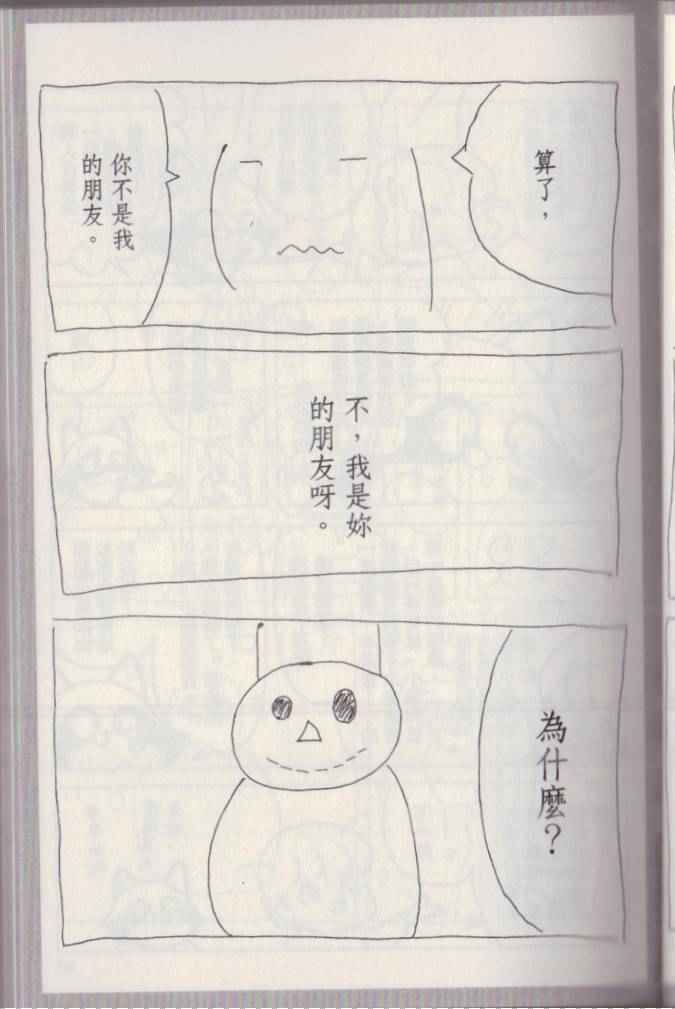 算了，
你不是我
的朋友。
不，我是妳
的朋友呀。
為什麼？